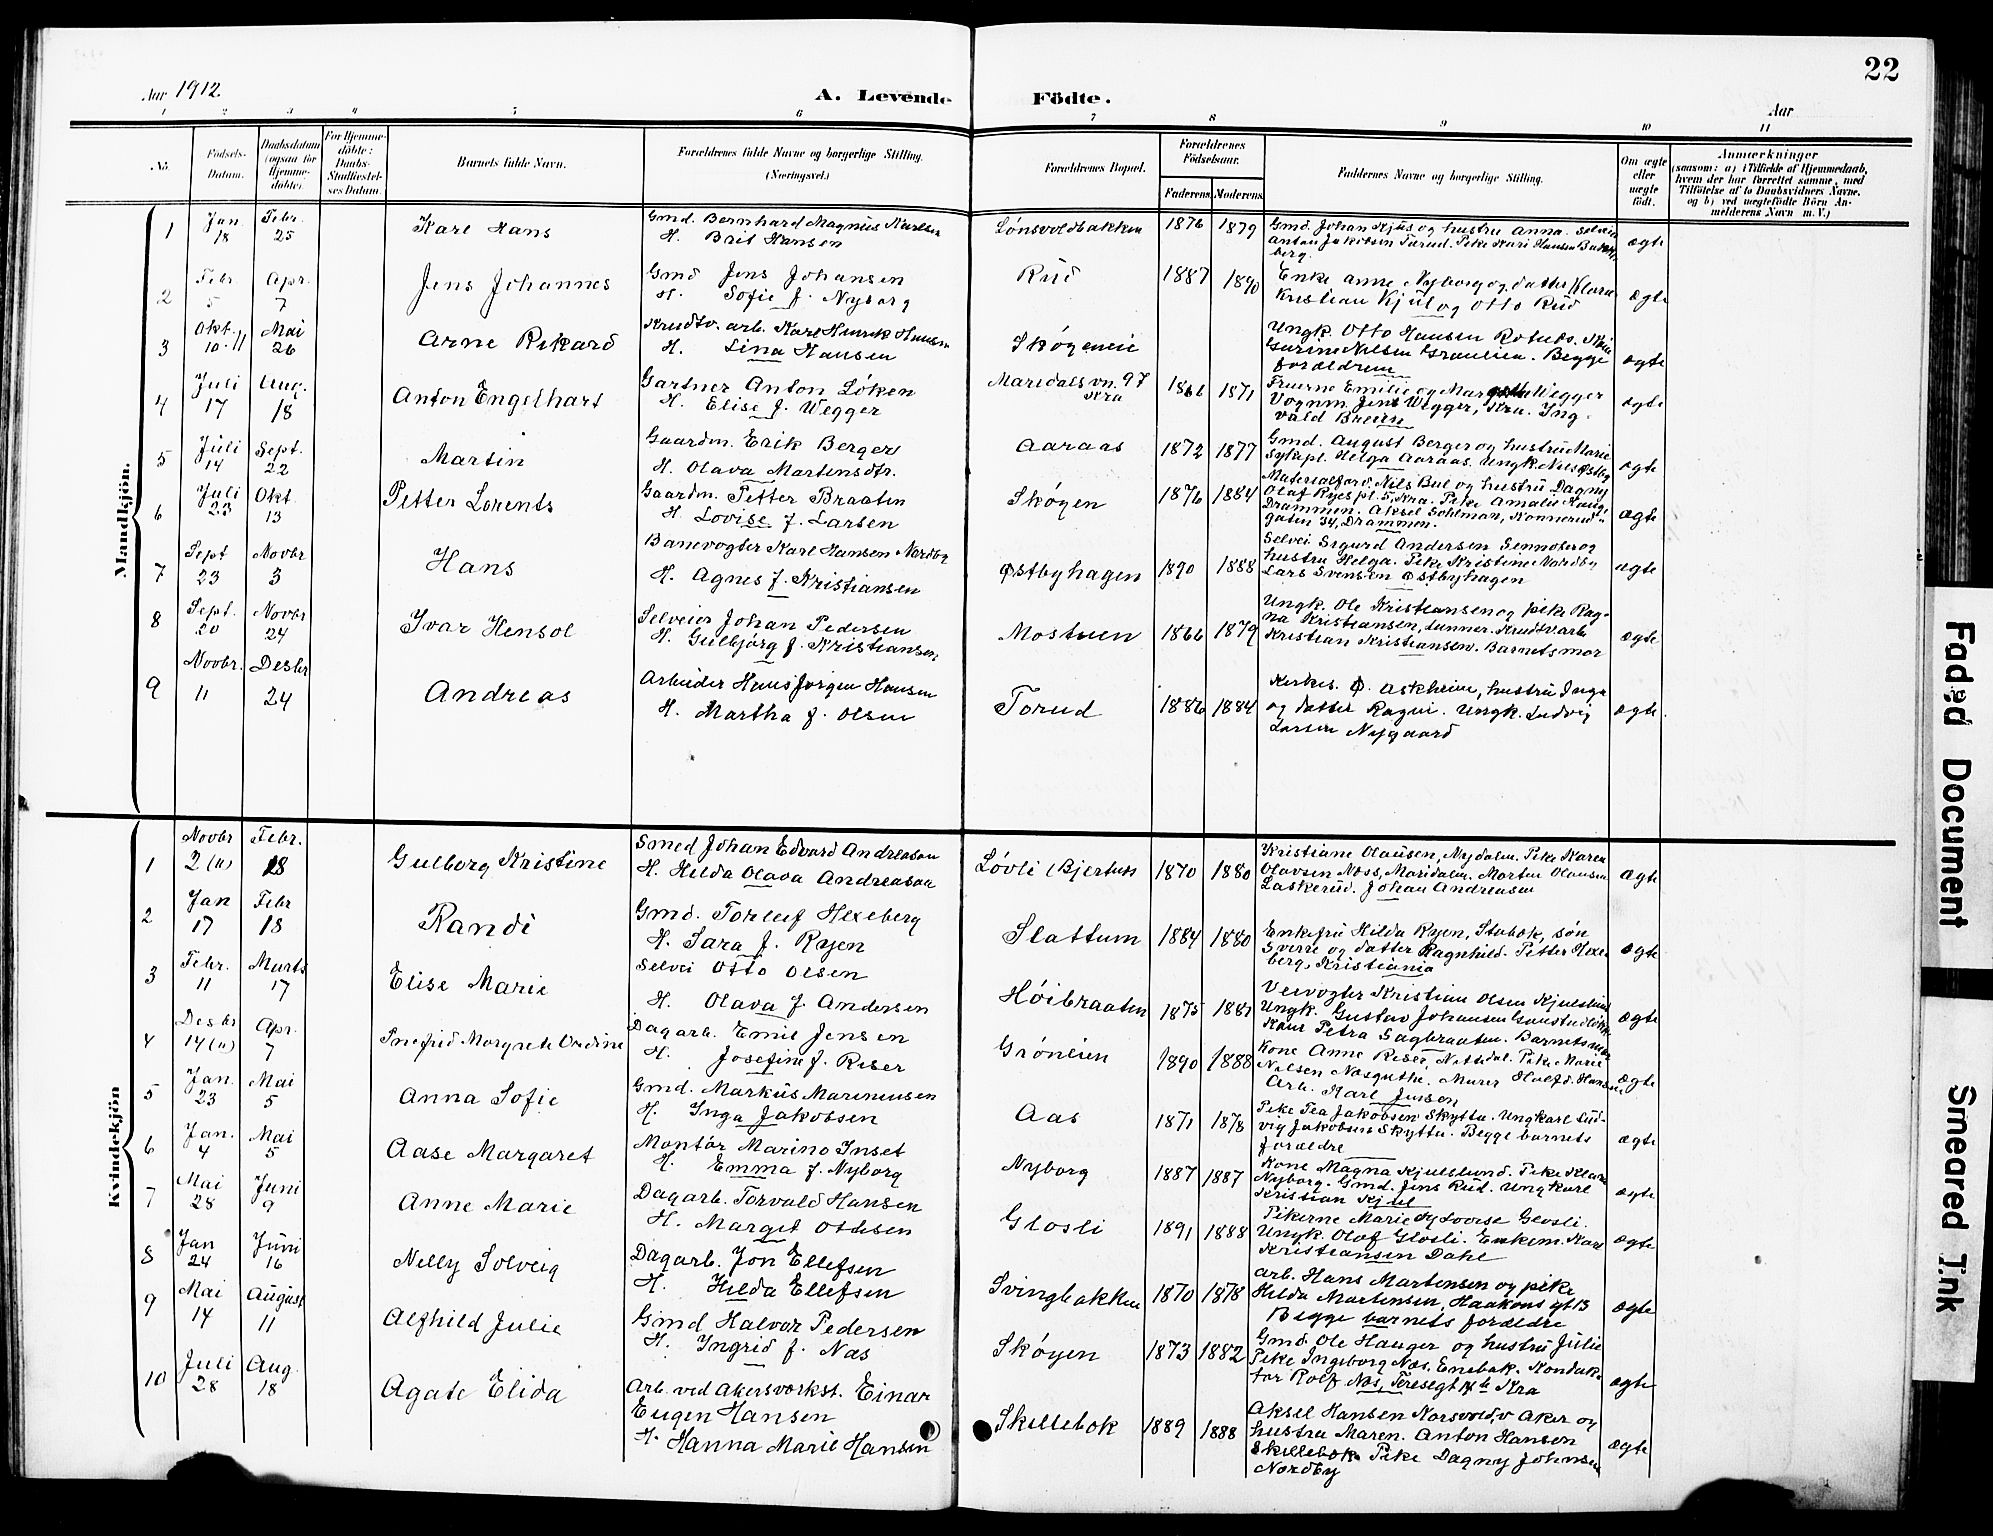 22
Aar 1912.
A. Levende Födte.
Aar
1 2 3 4 5 6 7 8 9 10 11
No.
Födsels-Datum.
Daabsdatum (ogsaa for Hjemme-döbte).
For Hjemme-döbte: Daabs-Stadfæstel-ses Datum.
Barnets fulde Navn.
Forældrenes fulde Navne og borgerlige Stilling. (Næringsvei.)
Forældrenes Bopæl.
Forældrenes Födselsaar.
Faderens. Moderens.
Faddernes Navne og borgerlige Stilling.
Om ægte eller uægte födt.
Anmærkninger
(saasom: a) i Tilfælde af Hjemmedaab, hvem der har forrettet samme, med Tilföielse af to Daabsvidners Navne, og b) ved uægtefödte Börn An-melderens Navn m. V.)
Mandkjön.
1 Jan 18 Febr. 25 Karl Hans
Gmd. Bernhard Magnus Karlsen
H. Brit Hansen
Lønsvoldbakken 1876 1879
Gmd. Johan Kjus og hustru Anna. Selveier
Anton Jakobsen Tørud. Pike Kari Hansen Bakke-
berg.
ægte
2 Febr. 5 Apr. 7 Jens Johannes
Gmd Jens Johansen
H. Sofie f. Nyborg
Rud 1887 1890
Enke Anne Nyborg og datter Klara
Kristian Kjul og Otto Rud
ægte
3 Okt. 10. 11 Mai 26 Arne Rikard
Krudtv. arb. Karl Henrik Hansen
H. Lina Hansen
Skøgeneie
Ungk. Otto Hansen
Gurine Nilsen Begge
forældrene
ægte
4 Juli 17 Aug. 18 Anton Engelhart
Gartner Anton Løken
H. Elise f. Wegger
Maridalsvn. 97 Kra 1866 1871
Fruerne Emilie og Wegger
Vognm. Jens Wegger, Kra. Ing-
vald Breien
ægte
5 Juli 14 Sept. 22 Martin
Gaardm. Erik Berger
H. Olava Martensdtr.
Aaraas 1872 1877
Gmd. August Berger og hustru Marie
Sykepl. Helga Aaraas. Ungk. Nils Østby
ægte
6 Juli 23 Okt. 13 Petter Lorents
Gaardm. Petter Braaten
H. Lovise f. Larsen
Skøyen 1876 1884
Materialforv. Nils Bul og hustru Dagny
Olaf Ryes pl. 5, Kra. Pike Amalie Haug-
Drammen. Aksel Sohlman, Konnerud-
gaten 34, Drammen.
ægte
7 Sept 23 Novbr 3 Hans
Banevogter Karl Hansen Nordby
H. Agnes f. Kristiansen
Østbyhagen 1890 1888
Selvei Sigurd Andersen Sennoter og
hustru Helga. Pike Kristine Nordby
Lars Svensen Østbyhagen
ægte
8 Sept. 20 Novbr 24 Ivar Hensol
Selveier Johan Pedersen
H. Gulbjørg f. Kristiansen
Mostuen 1866 1879
Ungk. Ole Kristiansen og pike Rag-
na Kristiansen, tunner. Krudtvarb
Kristian Kristiansen. Barnets mor
ægte
9 Novbr. 11 Desbr 24 Andreas
Arbeider Hans Jørgen Hansen
H. Martha f. Olsen
Torud 1886 1884
Kirkes. O. Askheim, hustru Inga
og datter Ragni. Ungk. Ludvig
Larsen Nygaard
ægte
Kvindekjön
1 Novbr 2 (11) Febr. 18 Gulborg Kristine
Smed Johan Edvard Andreasen
H. Hilda Olava Andreasen
Løvli (Bjertnes 1870 1880
Kristiane Olausen, Nydalen. Pike Karen
Olavsen Næs, Maridalen. Morten Olausen
Laskerud. Johan Andreasen
ægte
2 Jan 17 Febr 18 Randi
Gmd. Torleif Hexeberg
H. Sara f. Ryen
Slattum 1884 1880
Enkefru Hilda Ryen, Stabæk, søn
Sverre og datter Ragnhild. Petter Hexe-
berg, Kristiania
ægte
3 Febr. 11 Marts 17 Elise Marie
Selvei Otto Olsen
H. Olava f. Andersen
Høibraaten 1875 1881
Veivogter Kristian Olsen Kjulslund
Ungk. Gustav Johansen
Petra Sagbraaten. Barnets mor
ægte
4 Desbr 14 (11) Apr. 7 Ingfrid Margrete Undine
Dagarb. Emil Jensen
H. Josefine f. Riser
Grøneien 1890 1888
Kone Anne Riser, Nittedal. Pike Marie
Nilsen Næsguthe. Murer Halfd. Hansen
Arb. Karl Jensen
ægte
5 Jan. 23 Mai 5 Anna Sofie
Gmd. Markus Marinusen
H. Inga Jakobsen
Aas 1871 1878
Pike Tea Jakobsen Skytta. Ungkarl Lud-
vig Jakobsen Skytta. Begge barnets
forældre
ægte
6 Jan. 4 Mai 5 Aase Margaret
Montør Marino Inset
H. Emma f. Nyborg
Nyborg 1887 1887
Kone Magna Kjulslund. Pike Klara
Nyborg. Gmd. Jens Rud. Ungkarl
Kristian Kjul
ægte
7 Mai 28 Juni 9 Anne Marie
Dagarb. Torvald Hansen
H. Marget Ottesen
Glosli 1891 1888
Pikerne Marie og Lovise Glosli.
Ungk. Olaf Glosli. Enkem. Karl
Kristiansen Dahl
ægte
8 Jan 24 Juni 16 Nelly Solveig
Dagarb. Jon Ellefsen
H. Hilda Ellefsen
Svingbakken 1870 1878
Arb. Hans Martensen og pike
Hilda Martensen, Haakons gt 13
Begge barnets forældre
ægte
9 Mai 14 August 11 Alfhild Julie
Gmd Halvor Pedersen
H. Ingrid f. Næs
Skøyen 1873 1882
Gmd. Ole Hauger og hustru Julie
Pike Ingeborg Næs, Enebak. Konduk-
tør Rolf Næs, Teresegt 14b Kra
ægte
10 Juli 28 Aug. 18 Agate Elida
Arb. ved Akersværkst. Einar
Eugen Hansen
H. Hanna Marie Hansen
Skillebæk 1889 1888
Aksel Hansen Norsvold, v Aker og
hustru Maren. Anton Hansen
Skillebæk Pike Dagny Johnsen
Nordby
ægte
Faded Document
Smeared Ink